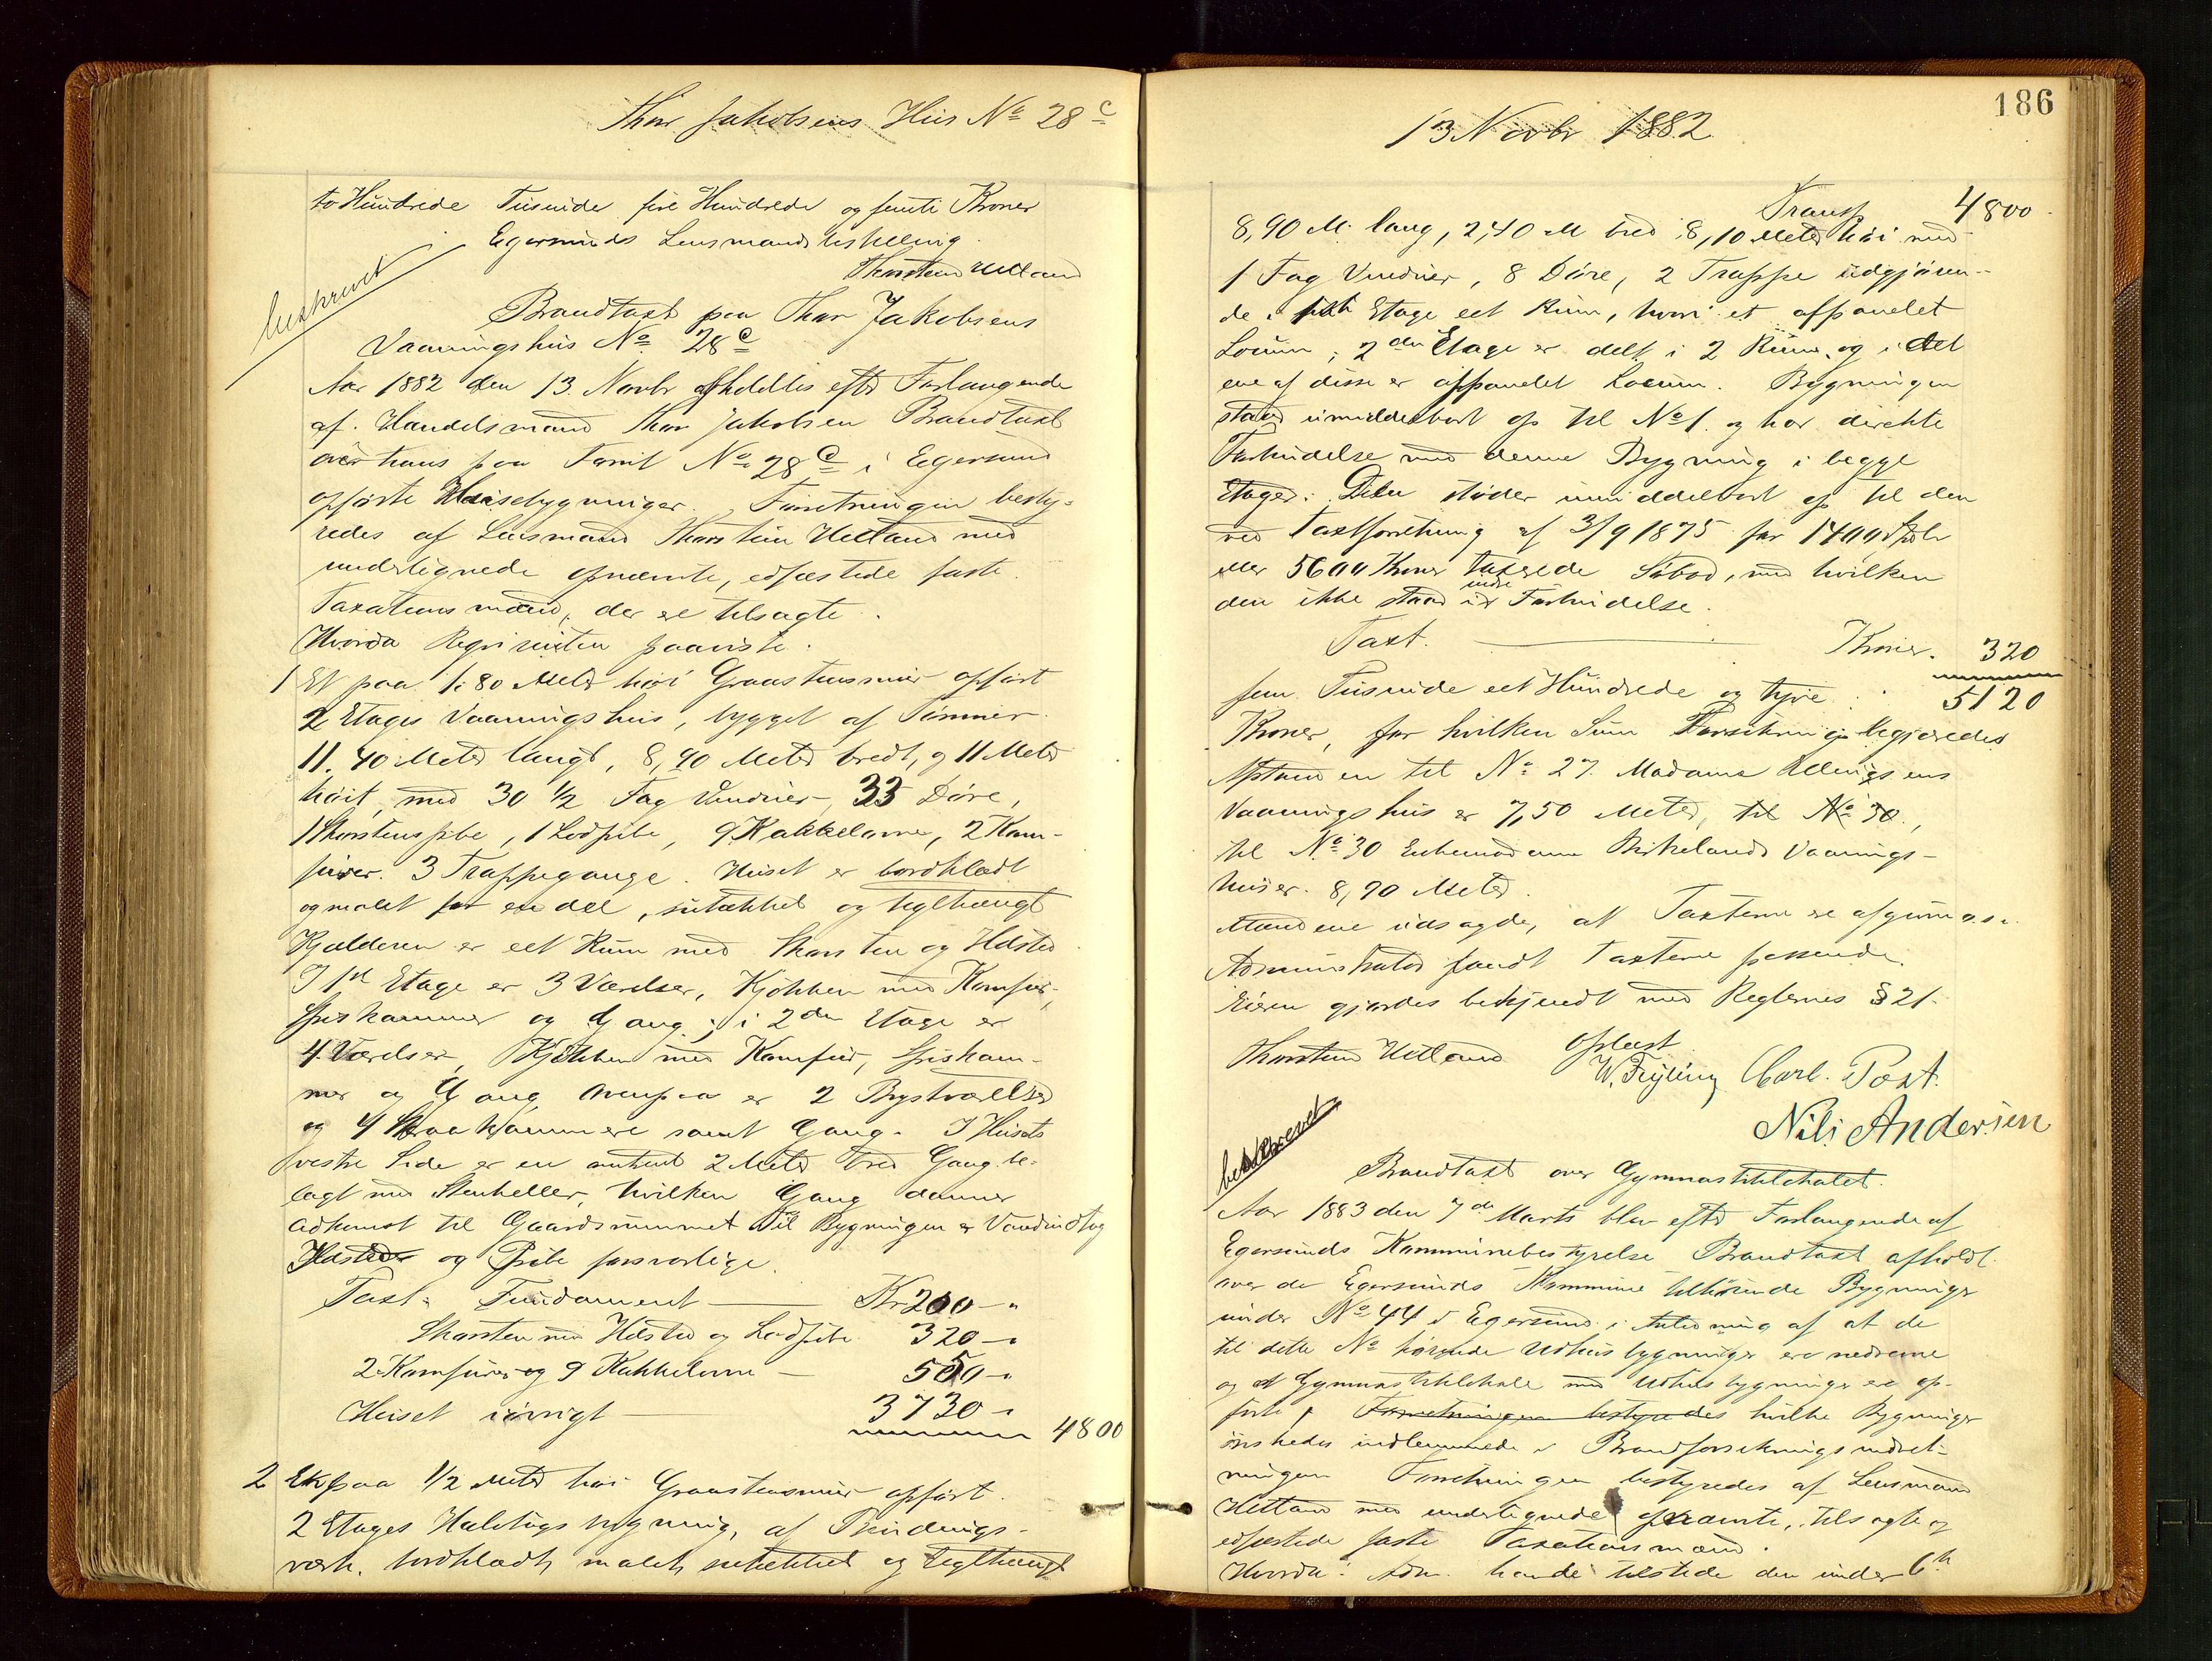 Thor Jakobsens Hus No 28 c
to Hundrede Tusinde fire Hundrede og femti Kroner
Egersunds Lensmandsbestilling
Thorstein Hetland
beskrevet
Brandtaxt paa Thor Jakobsens
Vaaningshus No 28 c
Aar 1882 den 13. Novbr afholdtes efter Forlangende
af Handelsmand Thor Jakobsen Brandtaxt
over hans paa Tomt No 28 c i Egersund
opførte Husebygninger. Forretningen besty-
redes af Lensmand Thorstein Hetland med
undertegnede opnævnte, edfæstede faste
Taxationsmænd, der ere tilsagte.
Hvorda Reqvirenten paaviste:
1 Et paa 1.80 Meter høi Graastensmur opført
2 Etages Vaaningshus, bygget af Tømmer
11.40 Meter langt, 8,90 Meter bredt, og 11 Meter
høit, med 30 1/2 Fag Vinduer, 33 Døre,
1 Skorstenspibe, 1 Lodpibe, 9 Kakkelovne, 2 Kom-
furer. 3 Trappegange. Huset er bordklædt
og malet for en del, sutækket og teglhængt
Kjælderen er eet Rum med Skorsten og Ildsted
I 1st Etage er 3 Værelser, Kjøkken med Komfur,
Spiskammer og Gang; i 2den Etage er
4 Værelser, Kjøkken med Komfur, Spiskam-
mer og Gang ovenpaa er 2 Brystværelser
og 4 Skraakammere samt Gang. I Husets
vestre Side er en omtrent 2 Meter bred Gang be-
lagt med Stenheller, hvilken Gang danner
Adkomst til Gaardsrummet. Til Bygningen er Vandindtag
Ildsteder og Pibe forsvarlige.
Taxt: Fundament — Kr 200 -"
Skorsten med Ildsted og Lodpibe 320 -"
2 Komfurer og 9 Kakkelovne — 550 -"
Huset iøvrigt — 3730 -"
4800
2 En paa 1/2 Meter høi Graastensmur opført
2 Etages Halvtagsbygning, af Bindings-
værk. bordklædt, malet, sutækket og teglhængt
186
13 Novbr 1882
Transp 4800
8,90 M. lang, 2,40 M bred 8,10 Meter høi med
1 Fag Vinduer, 8 Døre, 2 Trappe udgjøren-
de i 1ste Etage eet Rum, hvori et afpanelet
Locum; 2den Etage er delt i 2 Rum, og i det
ene af disse er afpanelet Locum. Bygningen
staar umiddelbart op til No 1 og har direkte
Forbindelse med denne Bygning i begge
Etager. Den støder umiddelbart op til den
ved Taxtforretning af 3/9 1875 for 1400 Spdlr
eller 5600 Kroner taxerede Søbod, med hvilken
den ikke staar i indre Forbindelse.
Taxt. — Kroner. 320
5120
fem Tusinde eet Hundrede og tyve
Kroner, for hvilken Sum Forsikring begjæredes
Afstanden til No 27. Madame
Vaaningshus er 7,50 Meter, til No 30,
til No 30 Enkemadame Birkelands Vaanings-
huser. 8,90 Meter.
Mændene udsagde, at Taxterne ere
Administrator fandt Taxterne passende.
Eieren gjordes bekjendt med Reglernes § 21.
Oplæst
Thorstein Hetland W. Feyling Carl. Post.
Nils Andersen
beskrevet
Brandtaxt over Gymnastiklokalet.
Aar 1883 den 7de Marts blev efter Forlangende af
Egersunds Kommunebestyrelse Brandtaxt afholdt
over de Egersunds Kommune tilhørende Bygninger
under No 44 i Egersund i Anledning af at de
til dette No hørende Udhusbygninger ere nedrevne
og et Gymnastiklokale med Udhusbygninger ere op-
førte, Forretningen bestyredes hvilke Bygninger
ønskedes indlemmede i Brandforsikringsindret-
ningen Forretningen bestyredes af Lensmand
Hetland med undertegnede opnævnte, tilsagte og
edfæstede faste Taxationsmænd.
Hvorda: Adm. havde tilstede den under 6te